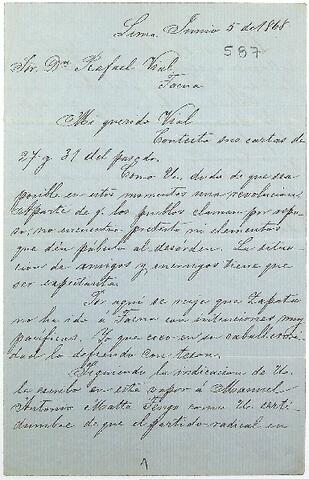 Lima Junio 5 de 1868
587
Sor. Dn. Rafael Vial
Tacna
Mi querido Vial
Contesto sus cartas de
27 y 31 del pasado.
Como Ud. dudo de que sea
posible en estos momentos una revolucion
aparte de q. los pueblos claman por repo-
so, no encuentro pretesto ni elementos
que den pábulo al desórden. La situa-
cion de amigos y enemigos tiene que
ser espectante.
Por aqui se ruje que Zapata
no ha ido á Tacna con intenciones muy
pacíficas. Yo que creo en su caballerosi-
dad lo defiendo con teson.
Siguiendo la indicacion de Ud.
le escribo en este vapor á Manuel
Antonio Matta Tengo como Ud. certi-
dumbre de que el partido radical en